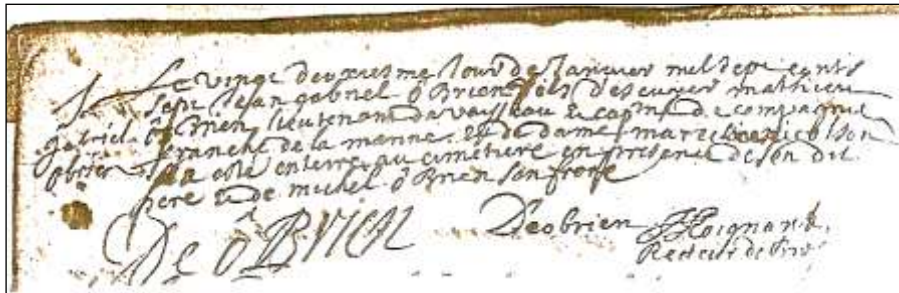 Le vingt deuxiesme Jour de Janvier mil sept cents
sept Jean gabriel ô Brien fils d'escuyer mathieu
gabriel ô Brien lieutenant de vaisseau & capne de compagnie
obrien franche de la marine & de dame marie nicolson
a esté enterré au cimetiere en presence de son dit
pere & de michel ô Brien son frere
De ô BriEn Deobrien
Recteur de